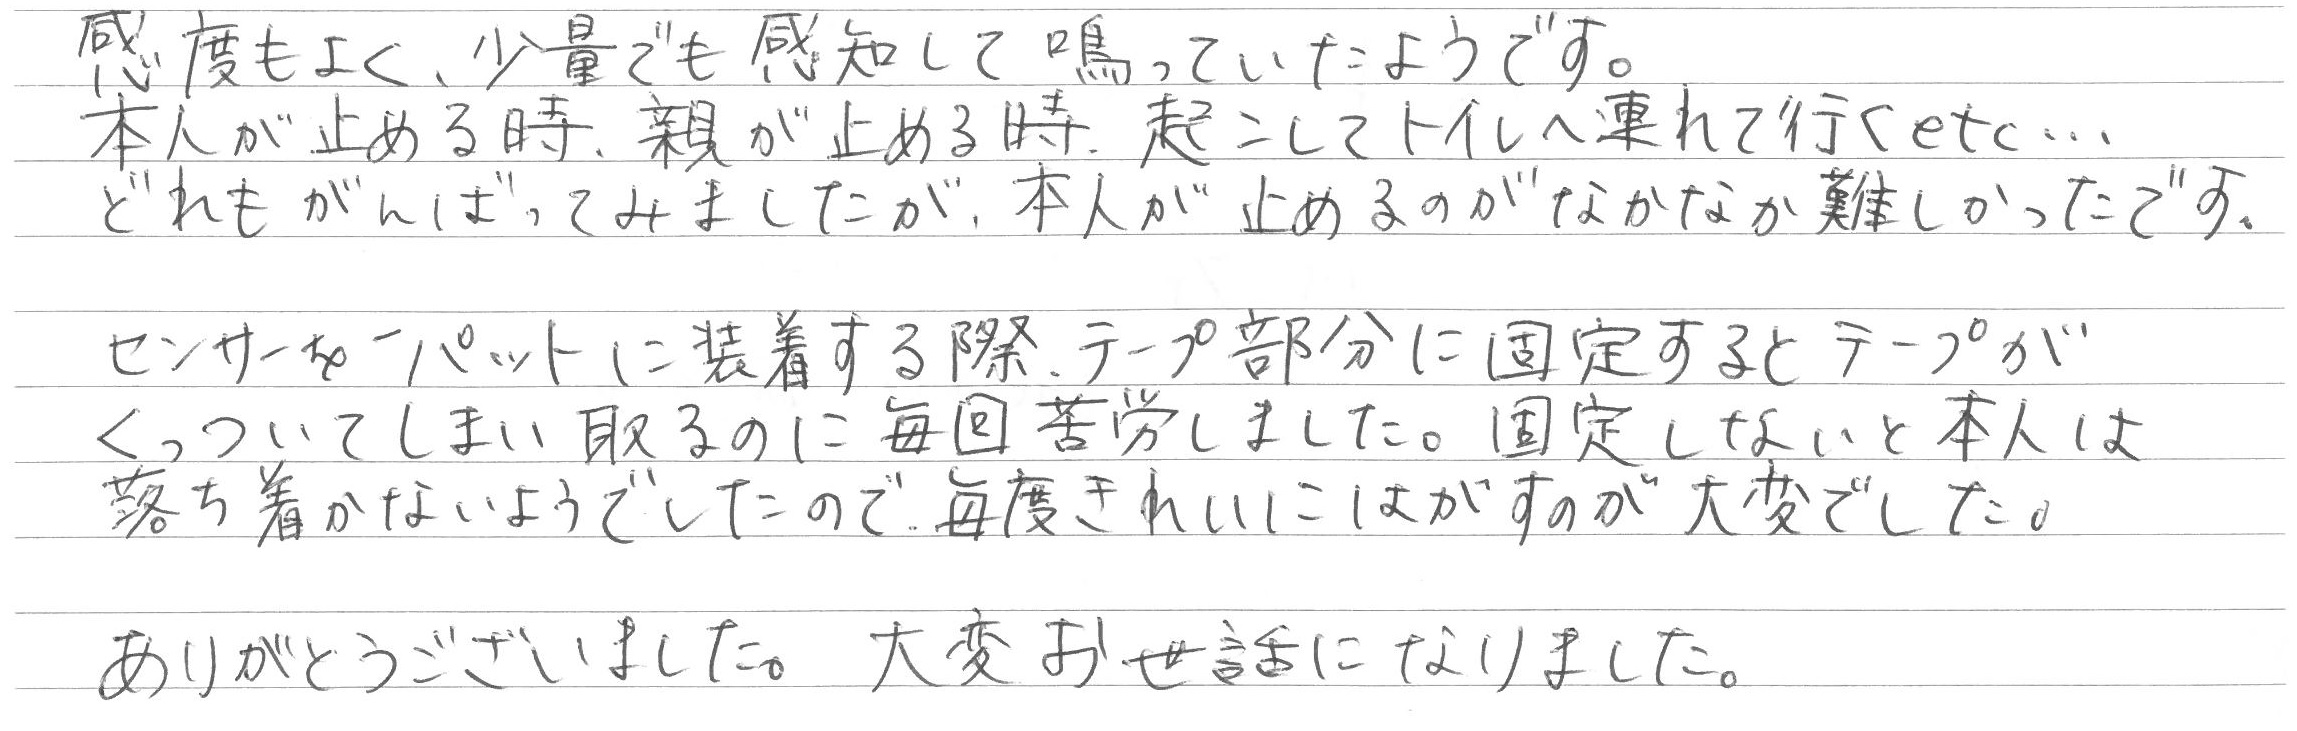 感度もよく、少量でも感知して鳴っていたようです。
本人が止める時、親が止める時、起こしてトイレへ連れて行くetc…
どれもがんばってみましたが、本人が止めるのがなかなか難しかったです。
センサーをパットに装着する際、テープ部分に固定するとテープが
くっついてしまい取るのに毎回苦労しました。固定しないと本人は
落ち着かないようでしたので、毎度きれいにはがすのが大変でした。
ありがとうございました。大変お世話になりました。